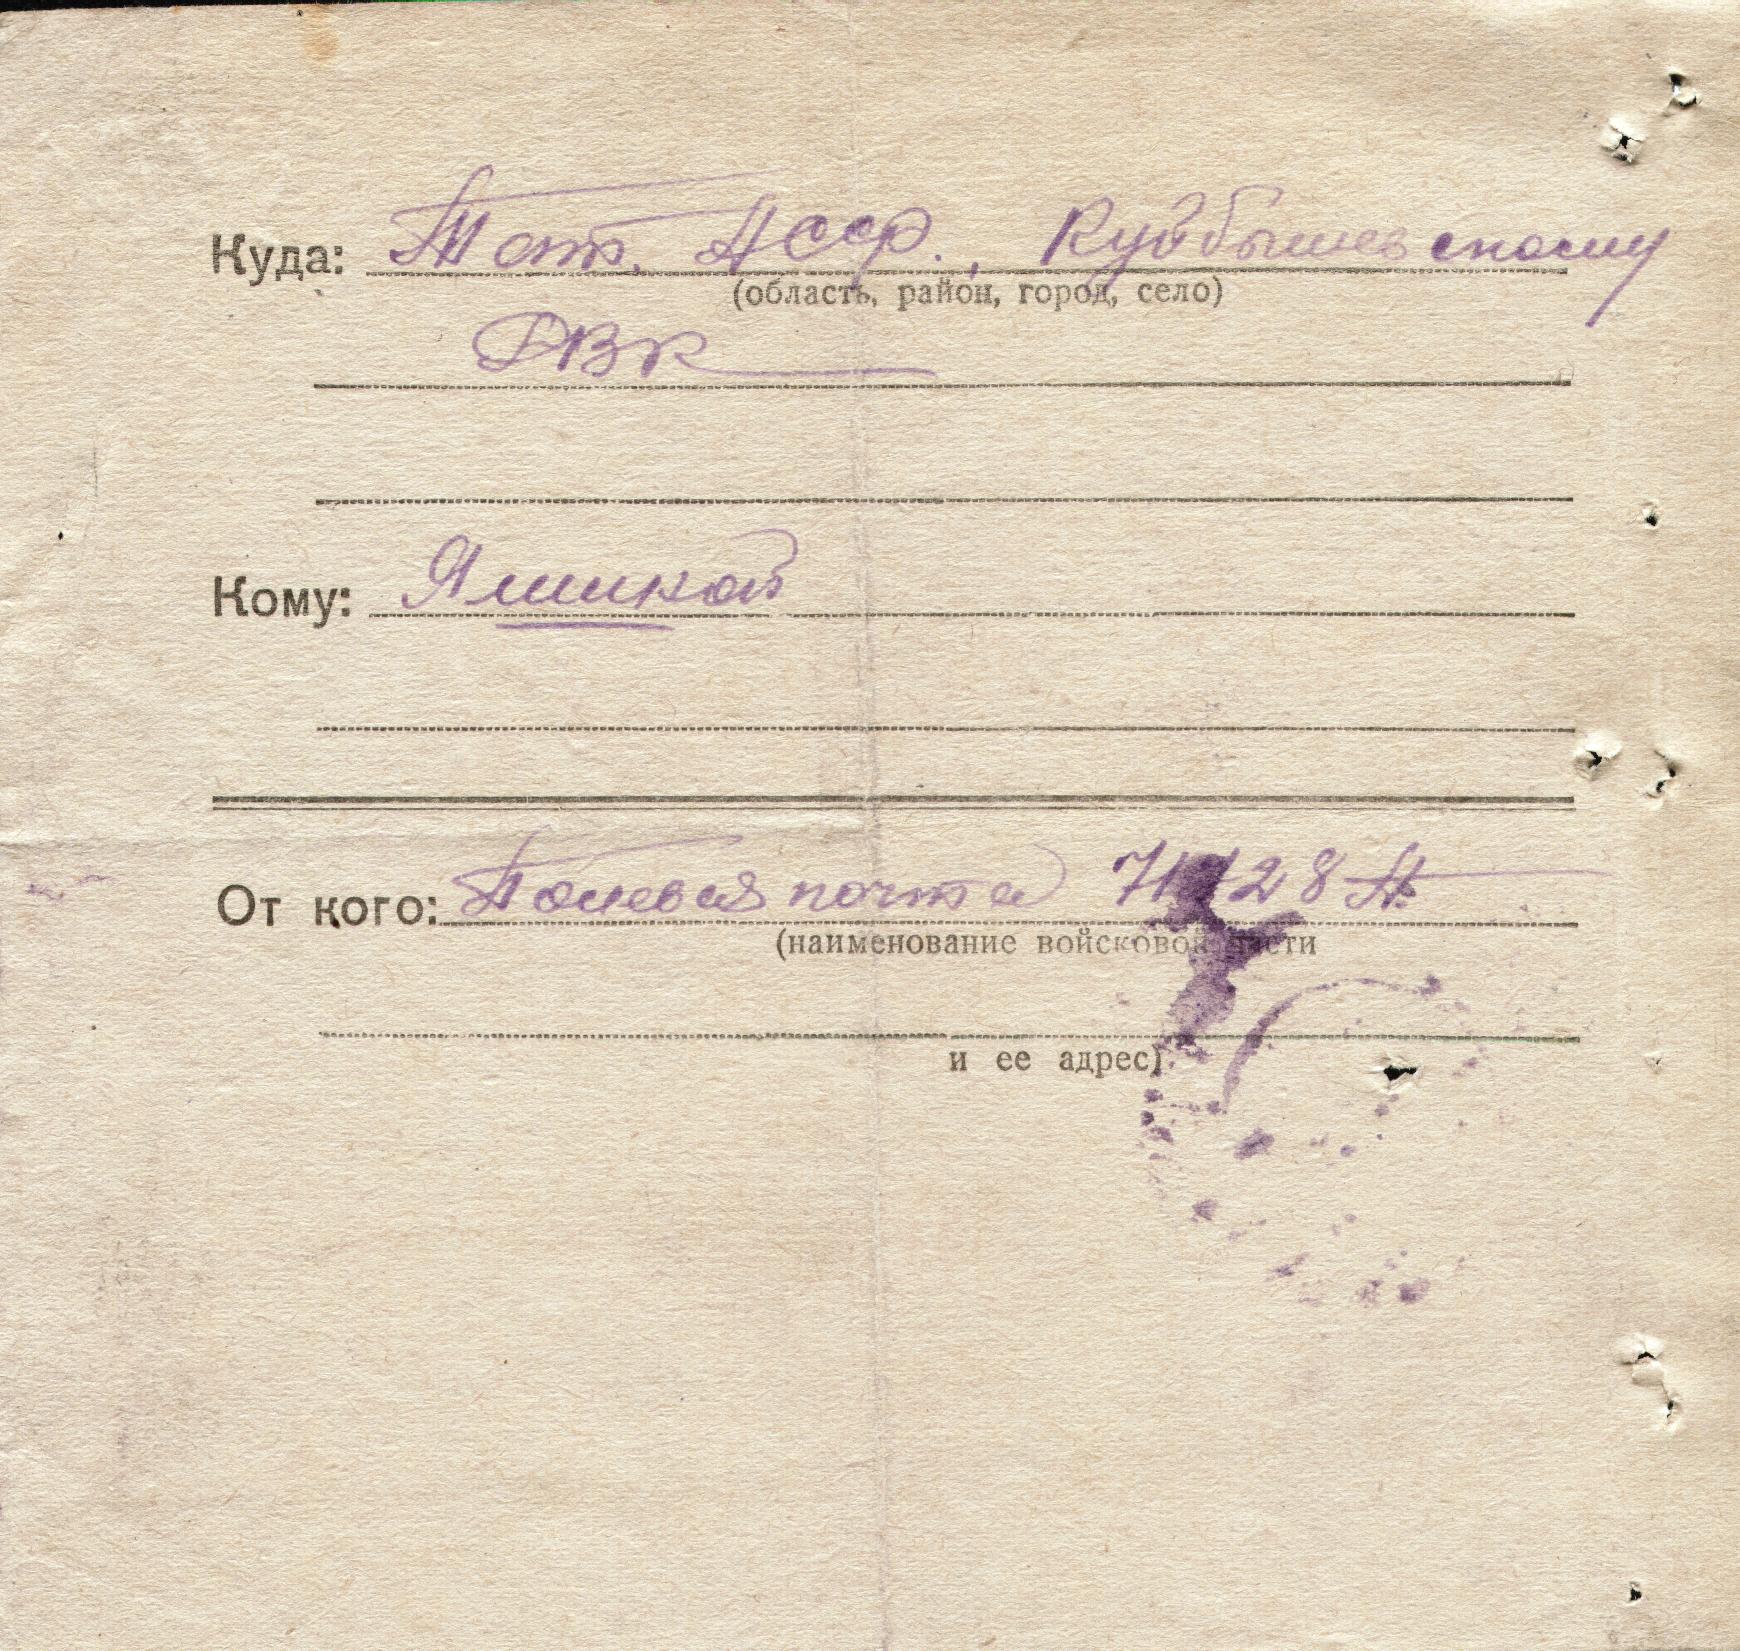 Куда: Тат. АССР., Куйбышевскому
(область, район, город, село)
РВК
Кому:
От кого: Полевая почта
(наименование войсковой части
и ее адрес)